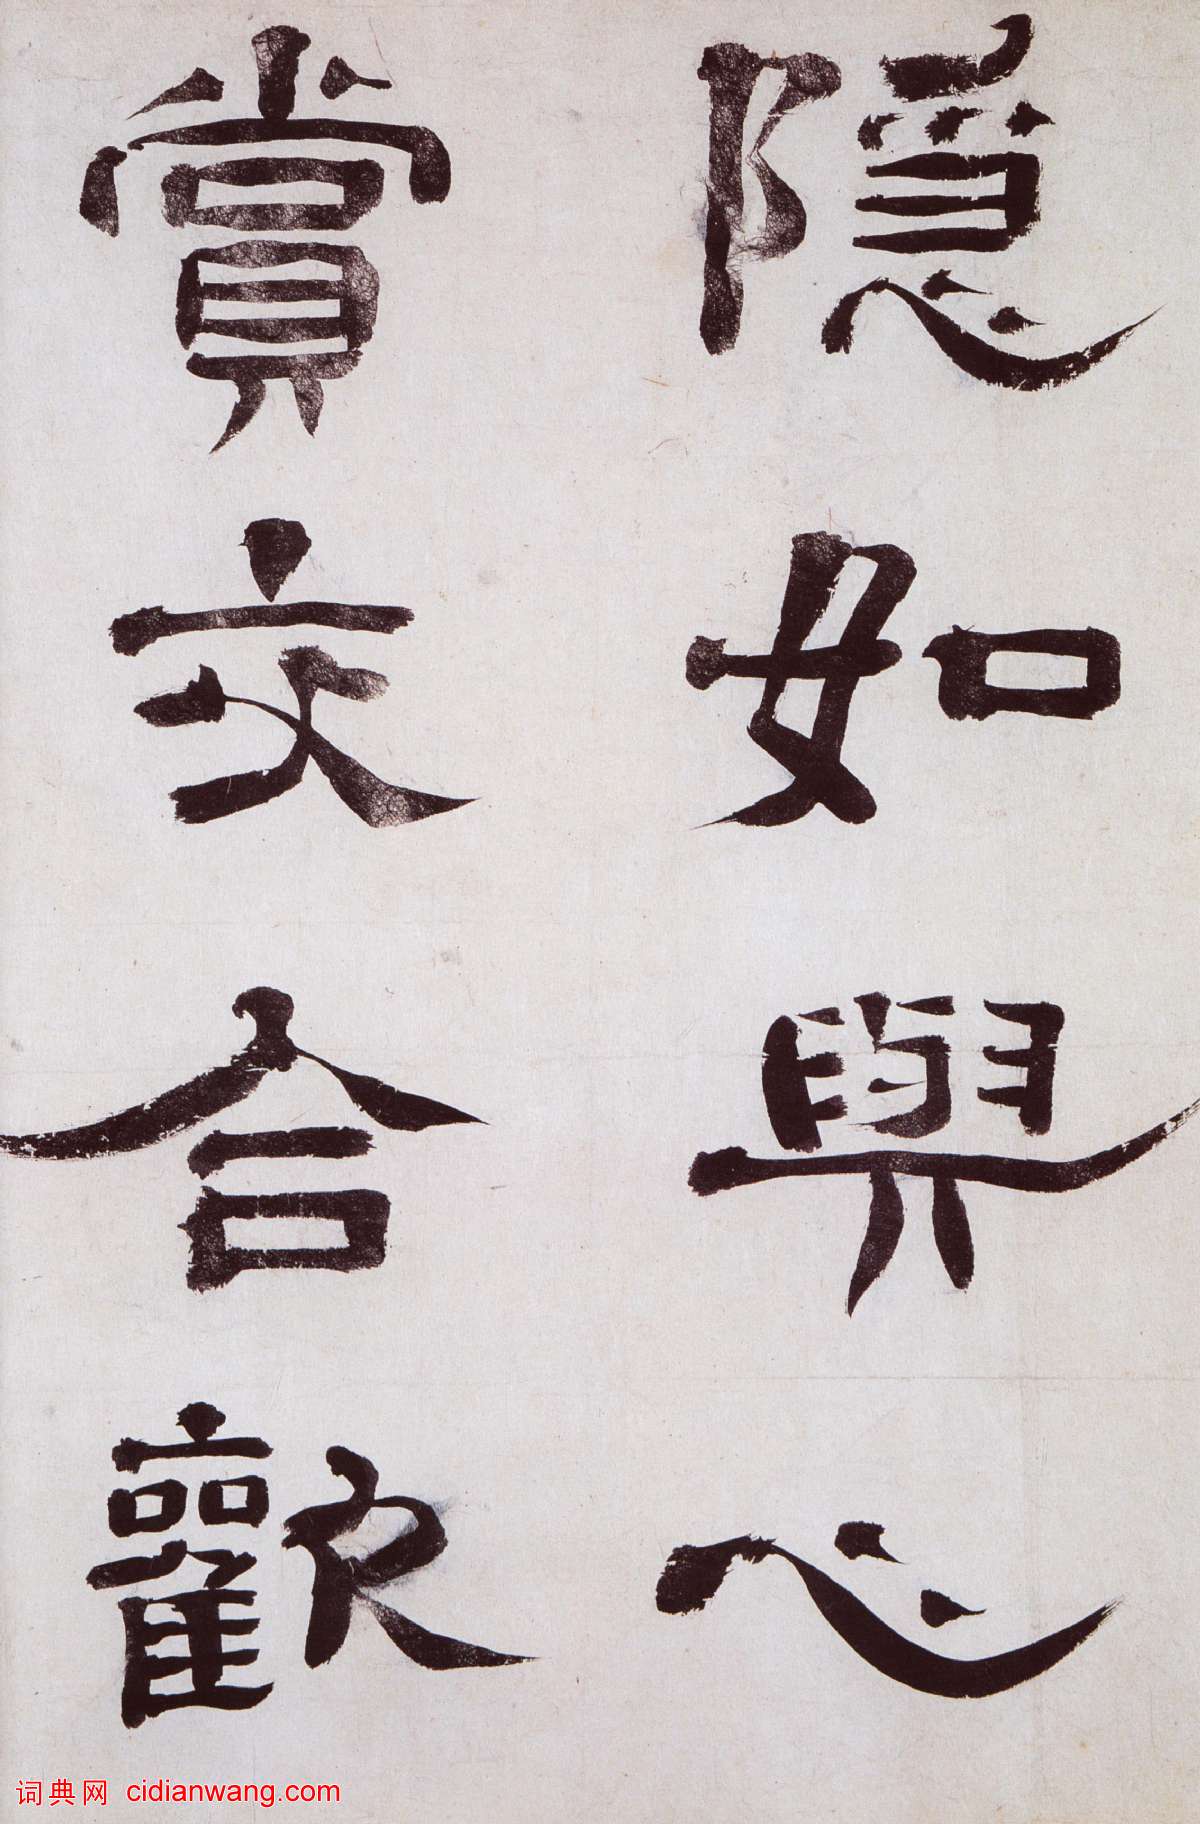 隱如與心
賞交合歡
词典网 cidianwang.com